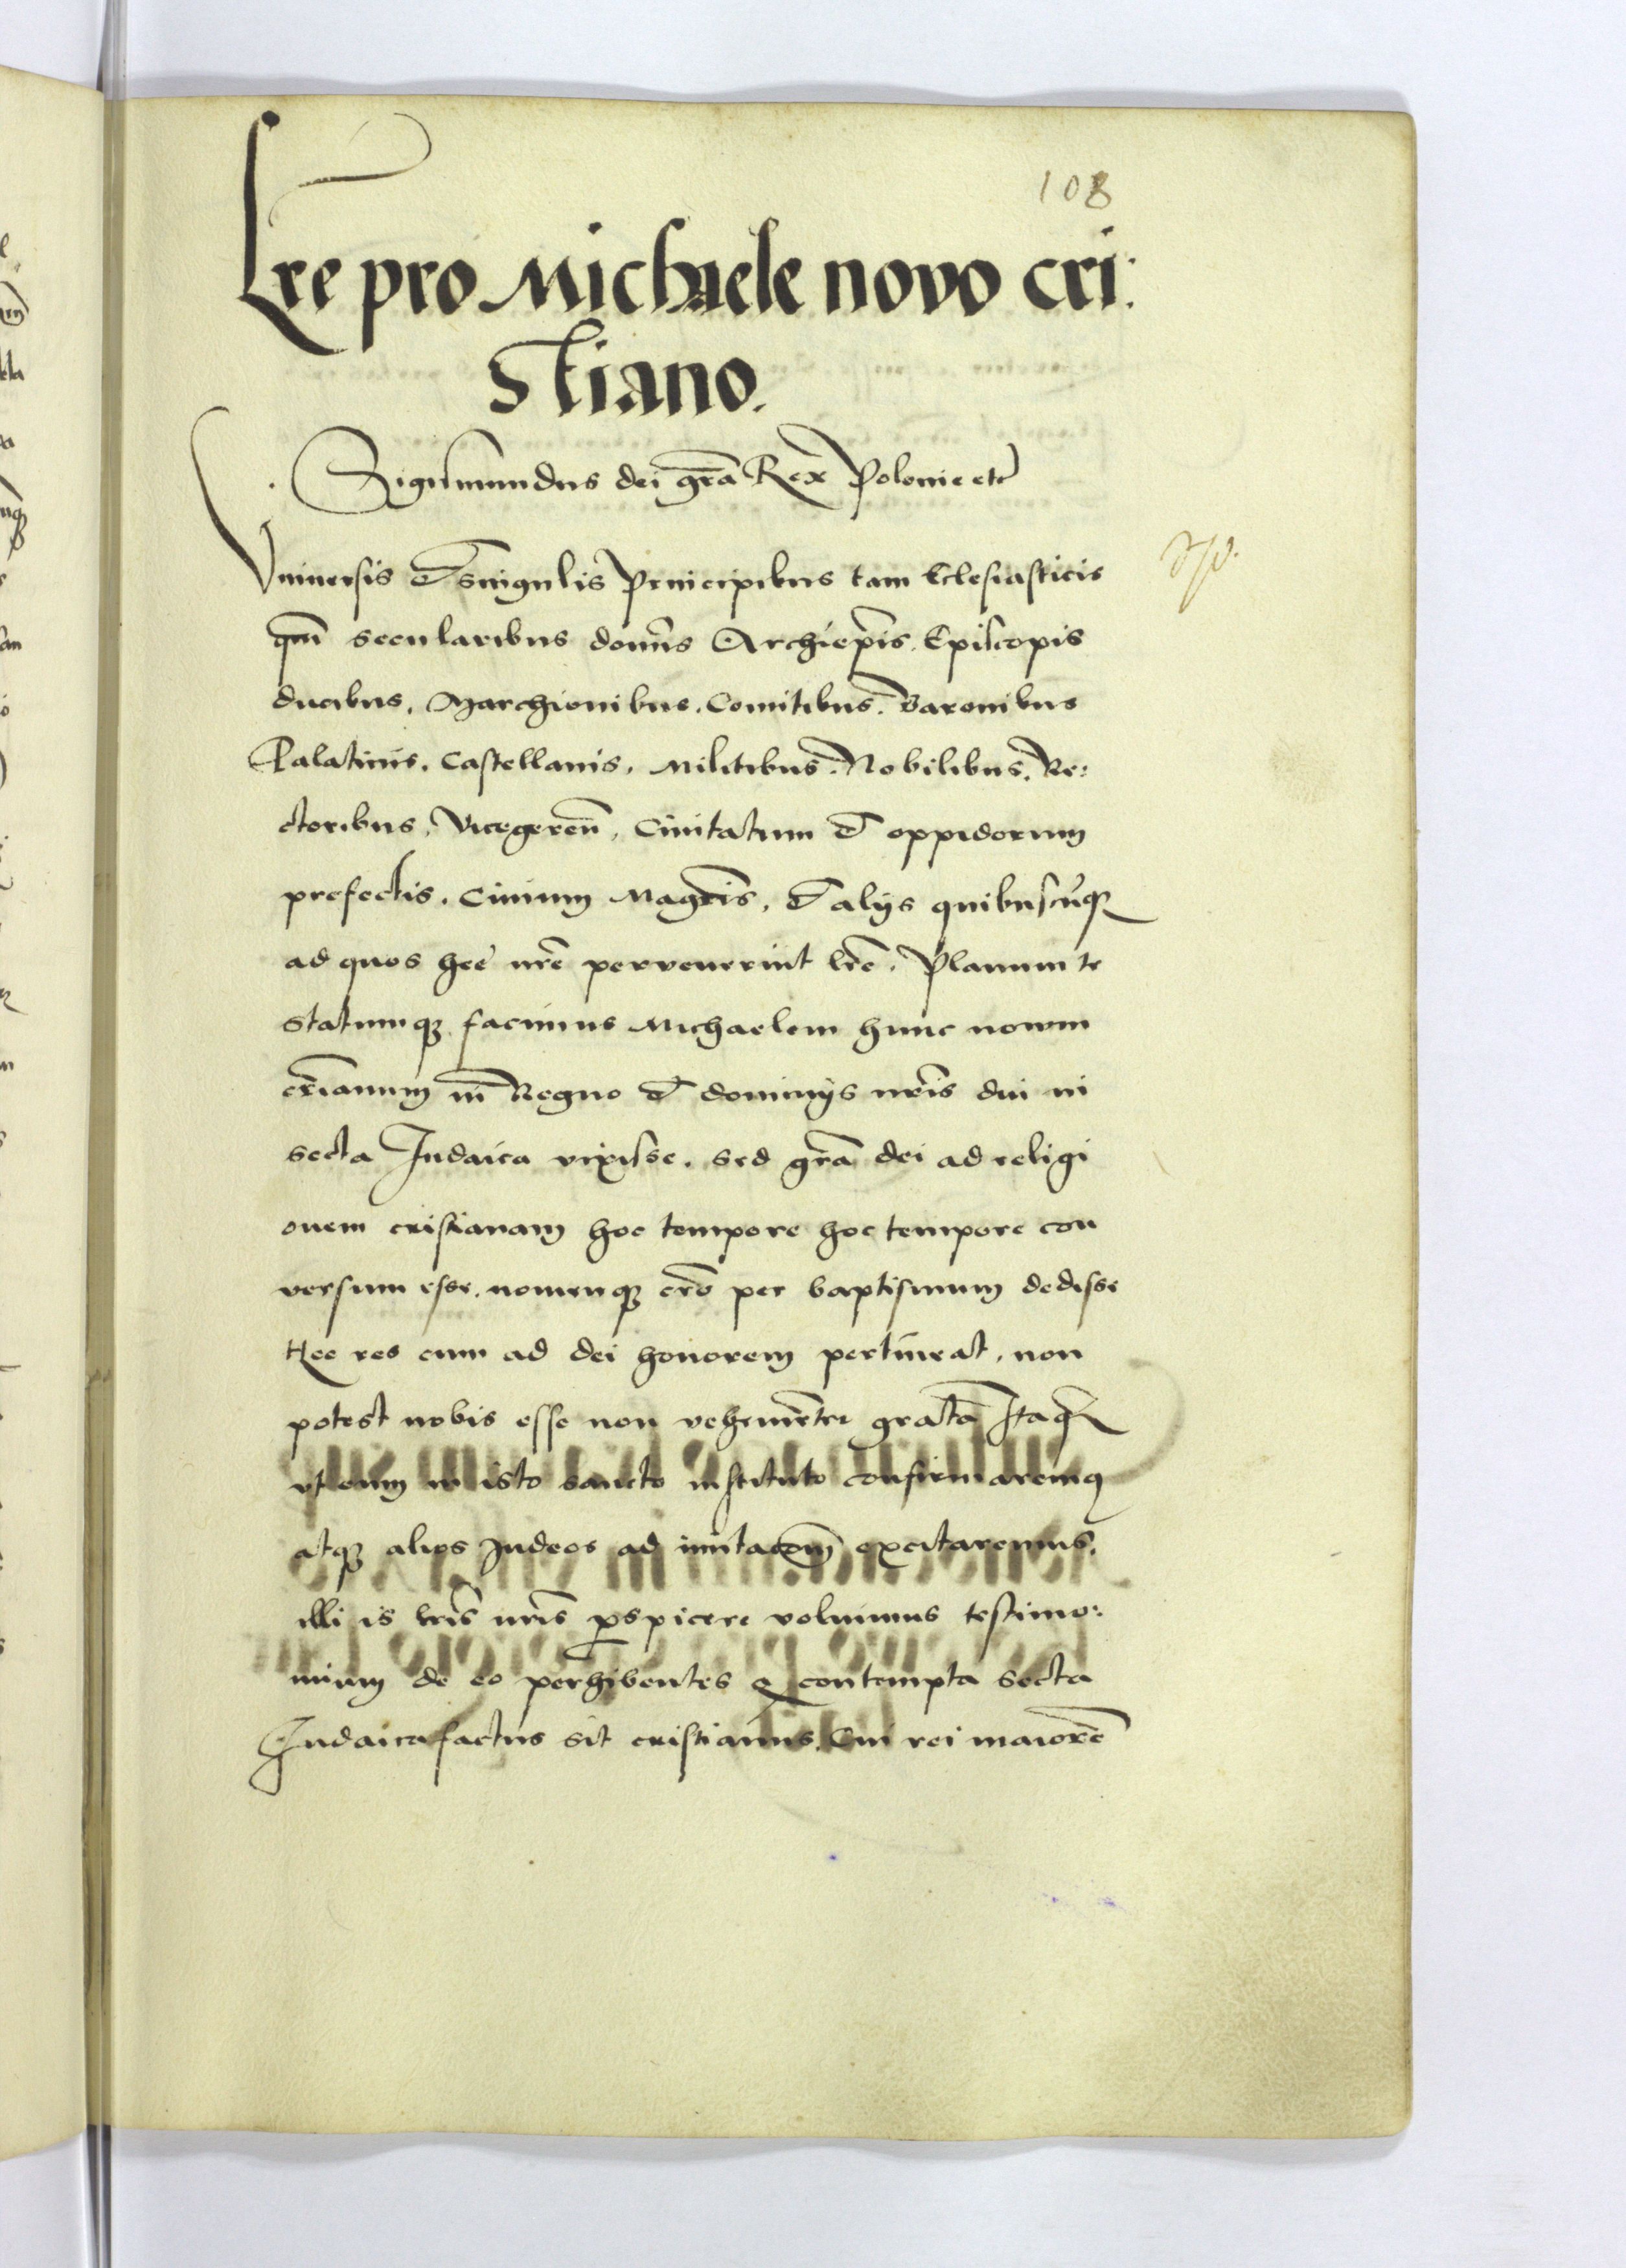 108
Lre pro Michaele novo cri:
stiano.
Sigismundus dei gra͞ Rex Polonie etc
Vniuersis et singulis Principibus tam Eclesiasticis
qm͞ secularibus domn͞s Archiep͞is. Episcopis
ducibus. Marchionibus. Comitibus. Baronibus
Palatinis. Castellanis. Militibus. Nobilibus. Re:
ctoribus. Vicegeren͞. Ciuitatum et oppidorum
prefectis. Ciuium Magr͞is. et alijs quibuscu͞q
ad quos hee nr͞e pervenerint lr͞e. Planum te
statumq facimus Michaelem hunc nowm
cr͞ianum in Regno et dominijs nr͞is diu in
secta Judaica vixisse. sed gr͞a dei ad religi
onem cristianam hoc tempore hoc tempore con
versum esse. nomenq cr͞o per baptismum dedisse
Hec res cum ad dei honorem pertineat. non
potest nobis esse non vehemen͞ter grata͞ Itaq
vt eum in isto sancto instituto confirmaremq
atq alios Judeos ad imitaco͞m excitaremus.
illi is lr͞is nr͞is p̱spicere voluimus testimo:
nium de eo perhibentes q contempta secta
Judaica factus sit cristianus. Cui rei maiore͞